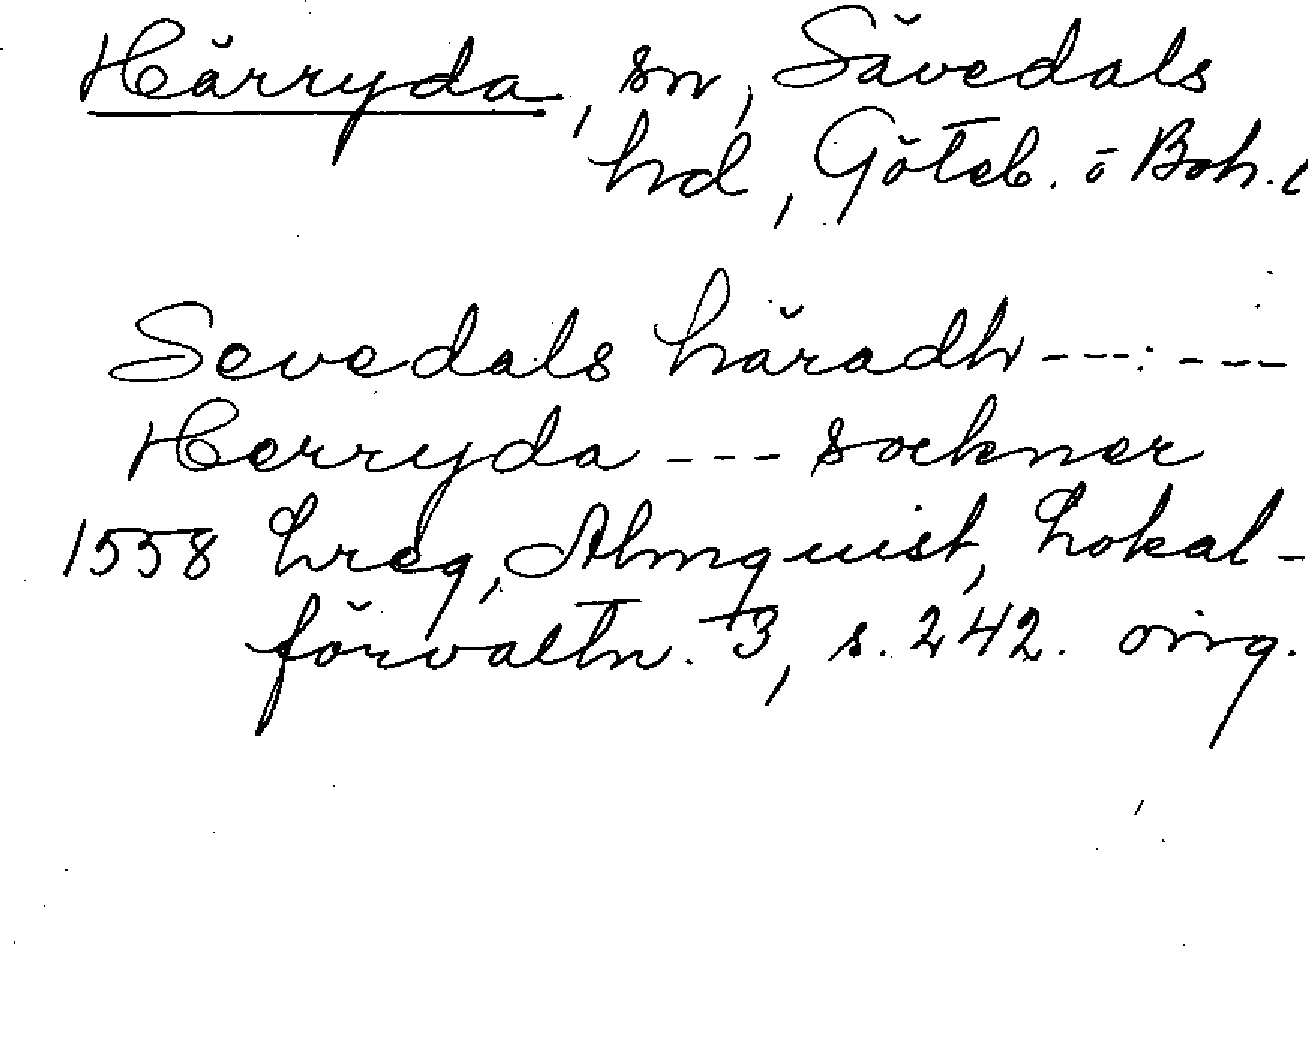 Härryda, sn, Sävedals
hd, Göteb. o Boh. l
Sevedals häradh --- : ---
Herryda --- sockner
1558 Lreg, Almquist, Lokal-
förvaltn. 3, s. 242.